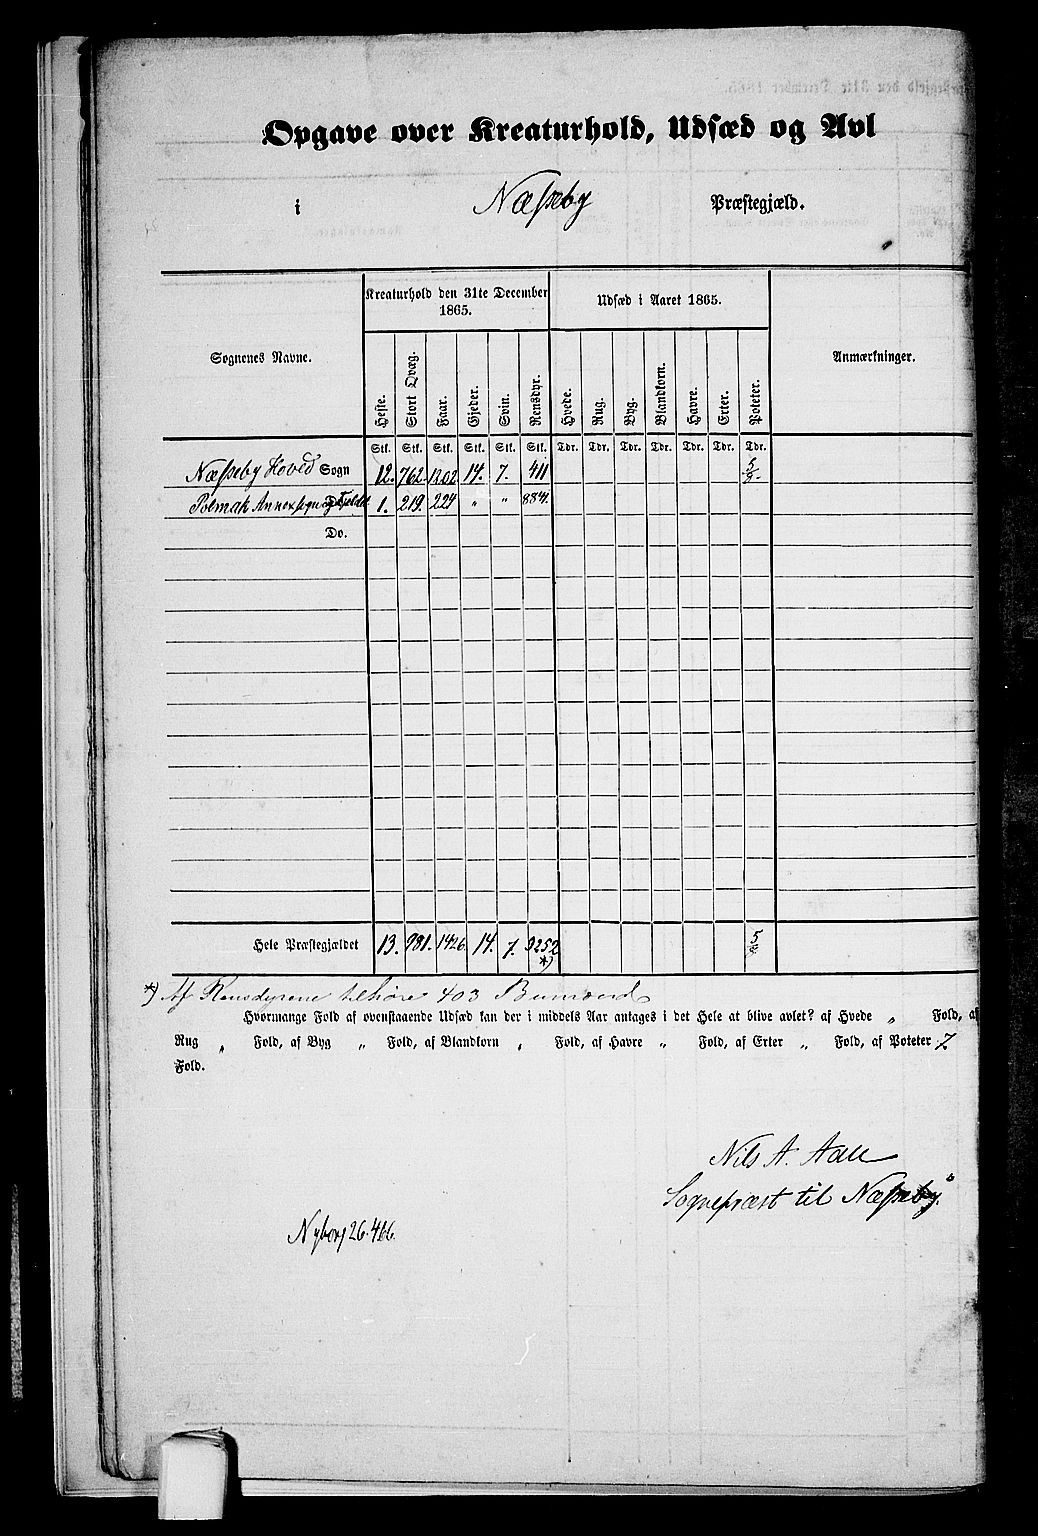 Opgave over Kreaturhold, Udsæd og Avl
i Næsseby Præstegjæld.
Sognenes Navne.
Kreaturhold den 31te December 1865.
Udsæd i Aaret 1865.
Anmærkninger.
Heste. Stort Qvæg. Faar. Gjeder. Svin. Rensdyr. Hvede. Rug. Byg. Blandkorn. Havre. Erter. Poteter.
Stk. Stk. Stk. Stk. Stk. Stk. Tdr. Tdr. Tdr. Tdr. Tdr. Tdr. Tdr.
Næsseby Hoved Sogn 12. 762. 1202 14. 7. 411
Polmak Annexsogn og Fjeldet 1. 219. 224 " " 8841.
Do.
Hele Præstegjældet 13. 981. 1426. 14. 7. 9252 *)
*) Af Rensdyrene tilhøre 403 Bumænd
Hvormange Fold af ovenstaaende Udsæd kan der i middels Aar antages i det Hele at blive avlet? af Hvede " Fold, af
Rug " Fold, af Byg " Fold, af Blandkorn " Fold, af Havre " Fold, af Erter " Fold, af Poteter 7.
Fold.
Nils A. Aall
Sognepræst til Næsseby.
Nyborg 26.4 66.